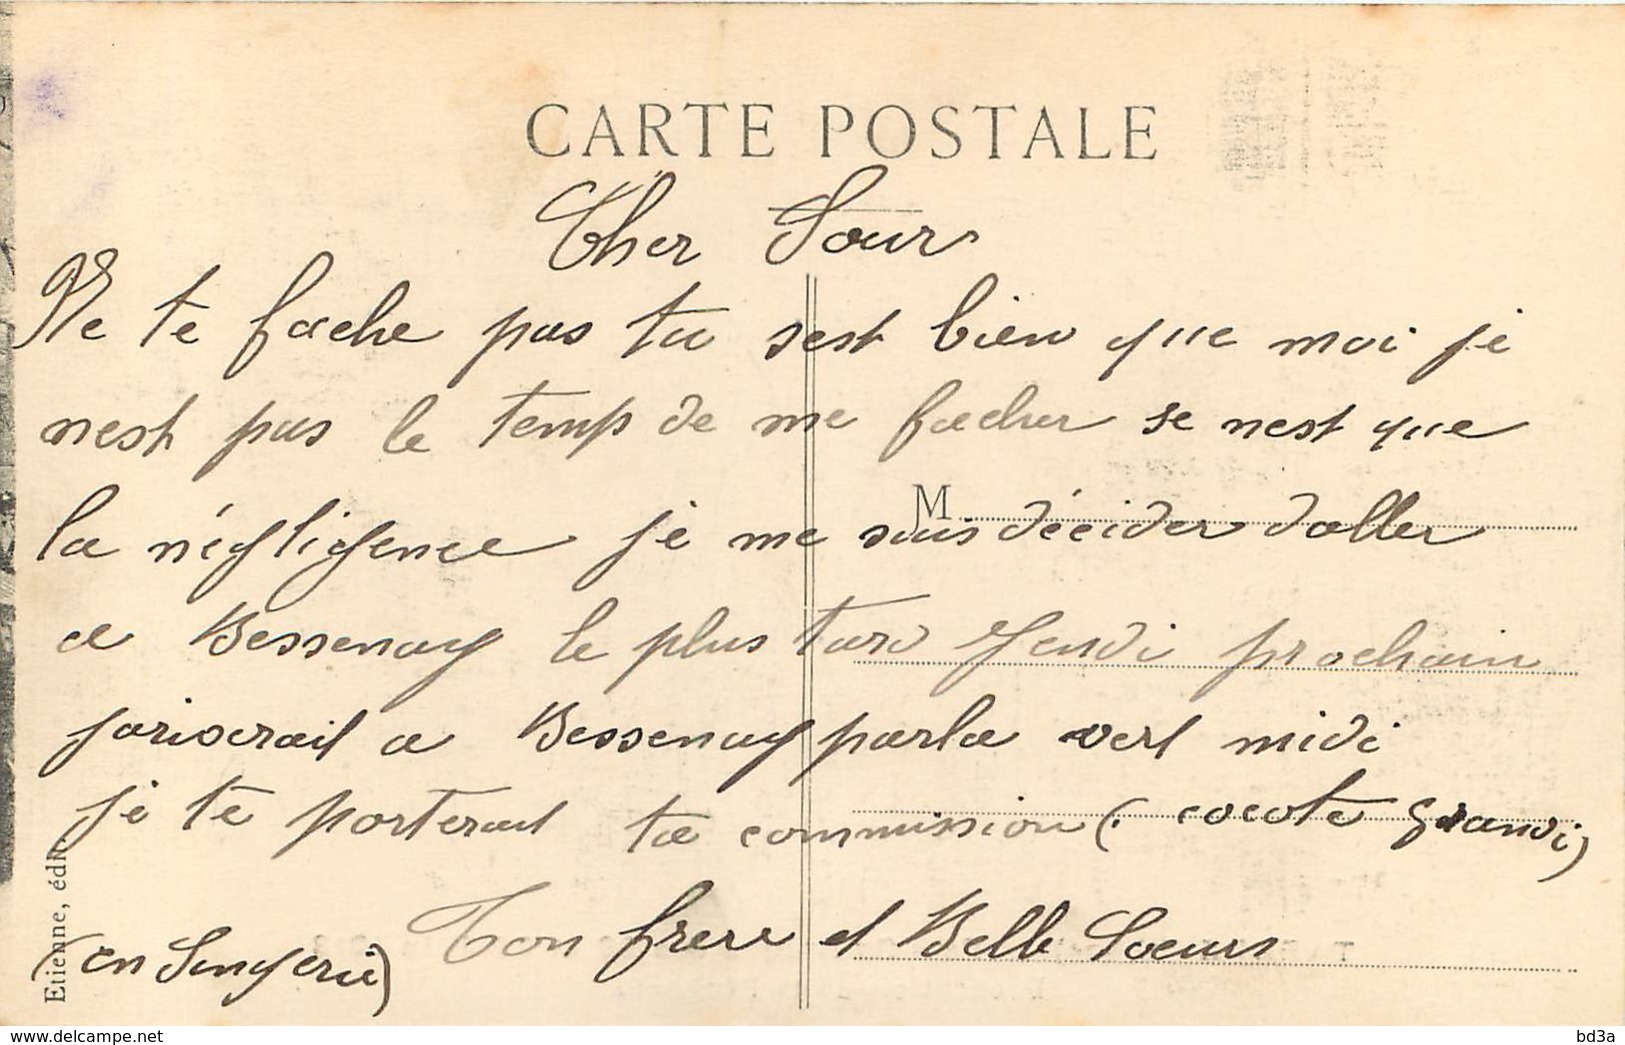 CARTE POSTALE
Cher Sœur
Ne te fache pas tu sest bien que moi je
nest pas le temp de me facher se nest que
M
la négligence je me suis décider daller
a Bessenay le plus tard Jeudi prochain
jariverait a Bessenay parla vert midi
je te porterait ta commission (cocote Grandi)
Ton frere et Belle Soeurs
(en Singerie)
Etienne, édit.
bd3a
www.delcampe.net